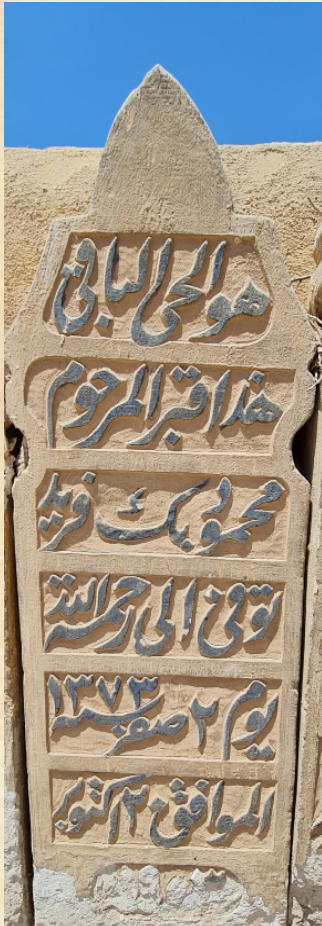 هو الحى الباقى
هذا قبر المرحوم
محمود بك فريد
توفى الى رحمة الله
يوم ٢ صفر سنه ١٣٧٣
الموافق اكتوبر